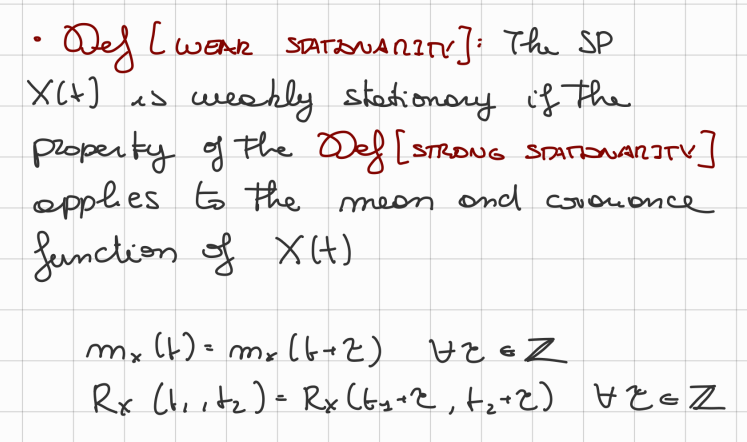 • Def [WEAK STATIONARITY]: The SP
X(t) is weakly stationary if the
property of the Def [STRONG STATIONARITY]
applies to the mean and covariance
function of X(t)
mₓ(t) = mₓ(t+τ) ∀τ ∈ ℤ
Rₓ(t₁, t₂) = Rₓ(t₁+τ, t₂+τ) ∀τ ∈ ℤ